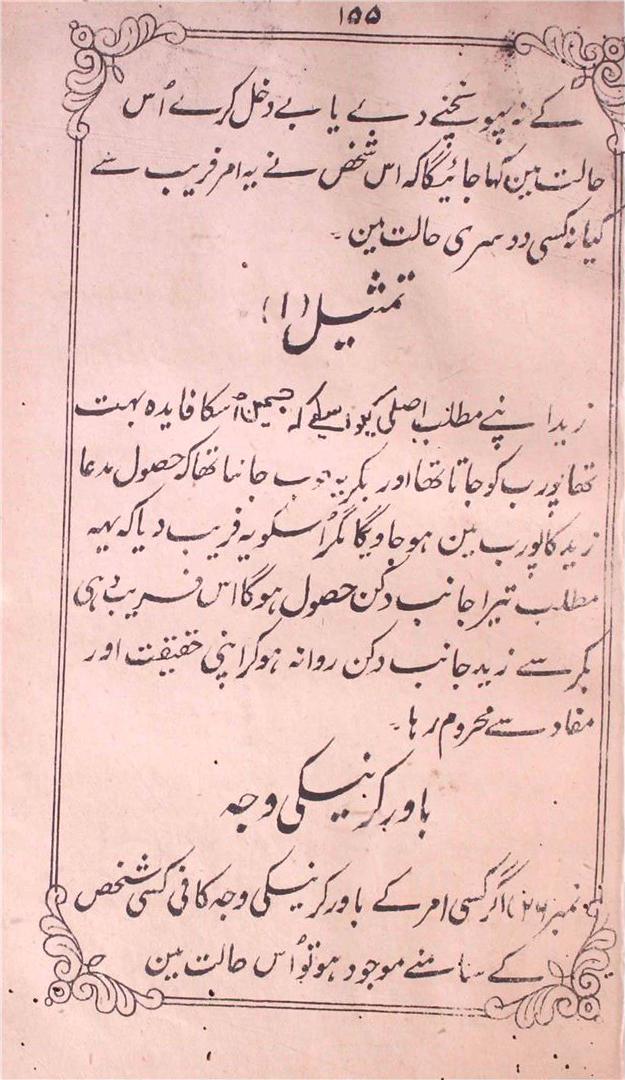 ۱۵۵
کے نہ پہونچنے دے یا بے دخل کرے اُس
حالت مین کہا جائیگا کہ اس شخص نے یہ امر فریب سے
کیا نہ کسی دوسری حالت مین ۔
تمثیل (۱)
زید اپنے مطلب اصلی کیواسطے کہ جسمین اُسکا فایدہ بہت
تھا پورب کو جاتا تھا اور بکر یہ خوب جانتا تھا کہ حصول مدعا
زید کا پورب مین ہو جاویگا مگر اُسکو یہ فریب دیا کہ یہہ
مطلب تیرا جانب دکن حصول ہوگا اس فریب دہی
بکر سے زید جانب دکن روانہ ہو کر اپنی حقیقت اور
مفاد سے محروم رہا ۔
باور کرنیکی وجہ
نمبر (۲۶) اگر کسی امر کے باور کرنیکی وجہ کافی کسی شخص
کے سامنے موجود ہو تو اُس حالت مین